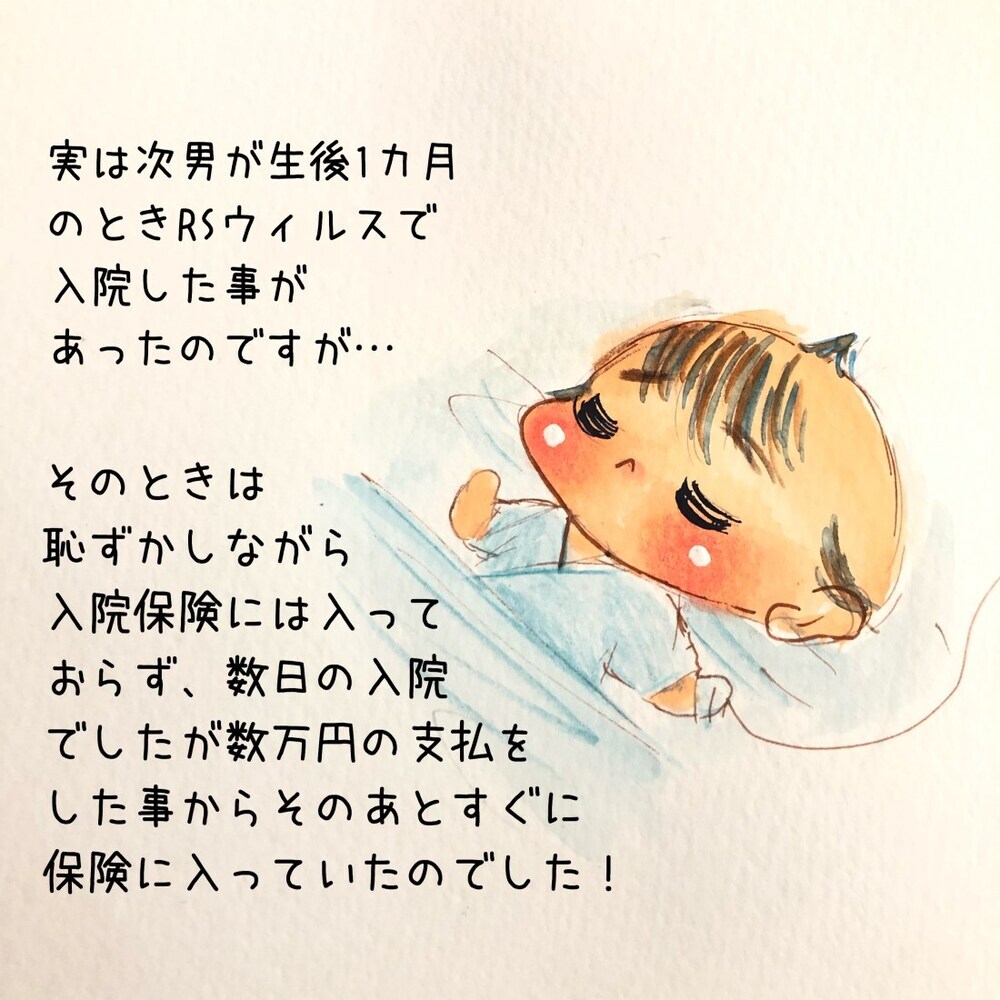 実は次男が生後1カ月
のときRSウィルスで
入院した事が
あったのですが…
そのときは
恥ずかしながら
入院保険には入って
おらず、数日の入院
でしたが数万円の支払を
した事からそのあとすぐに
保険に入っていたのでした！